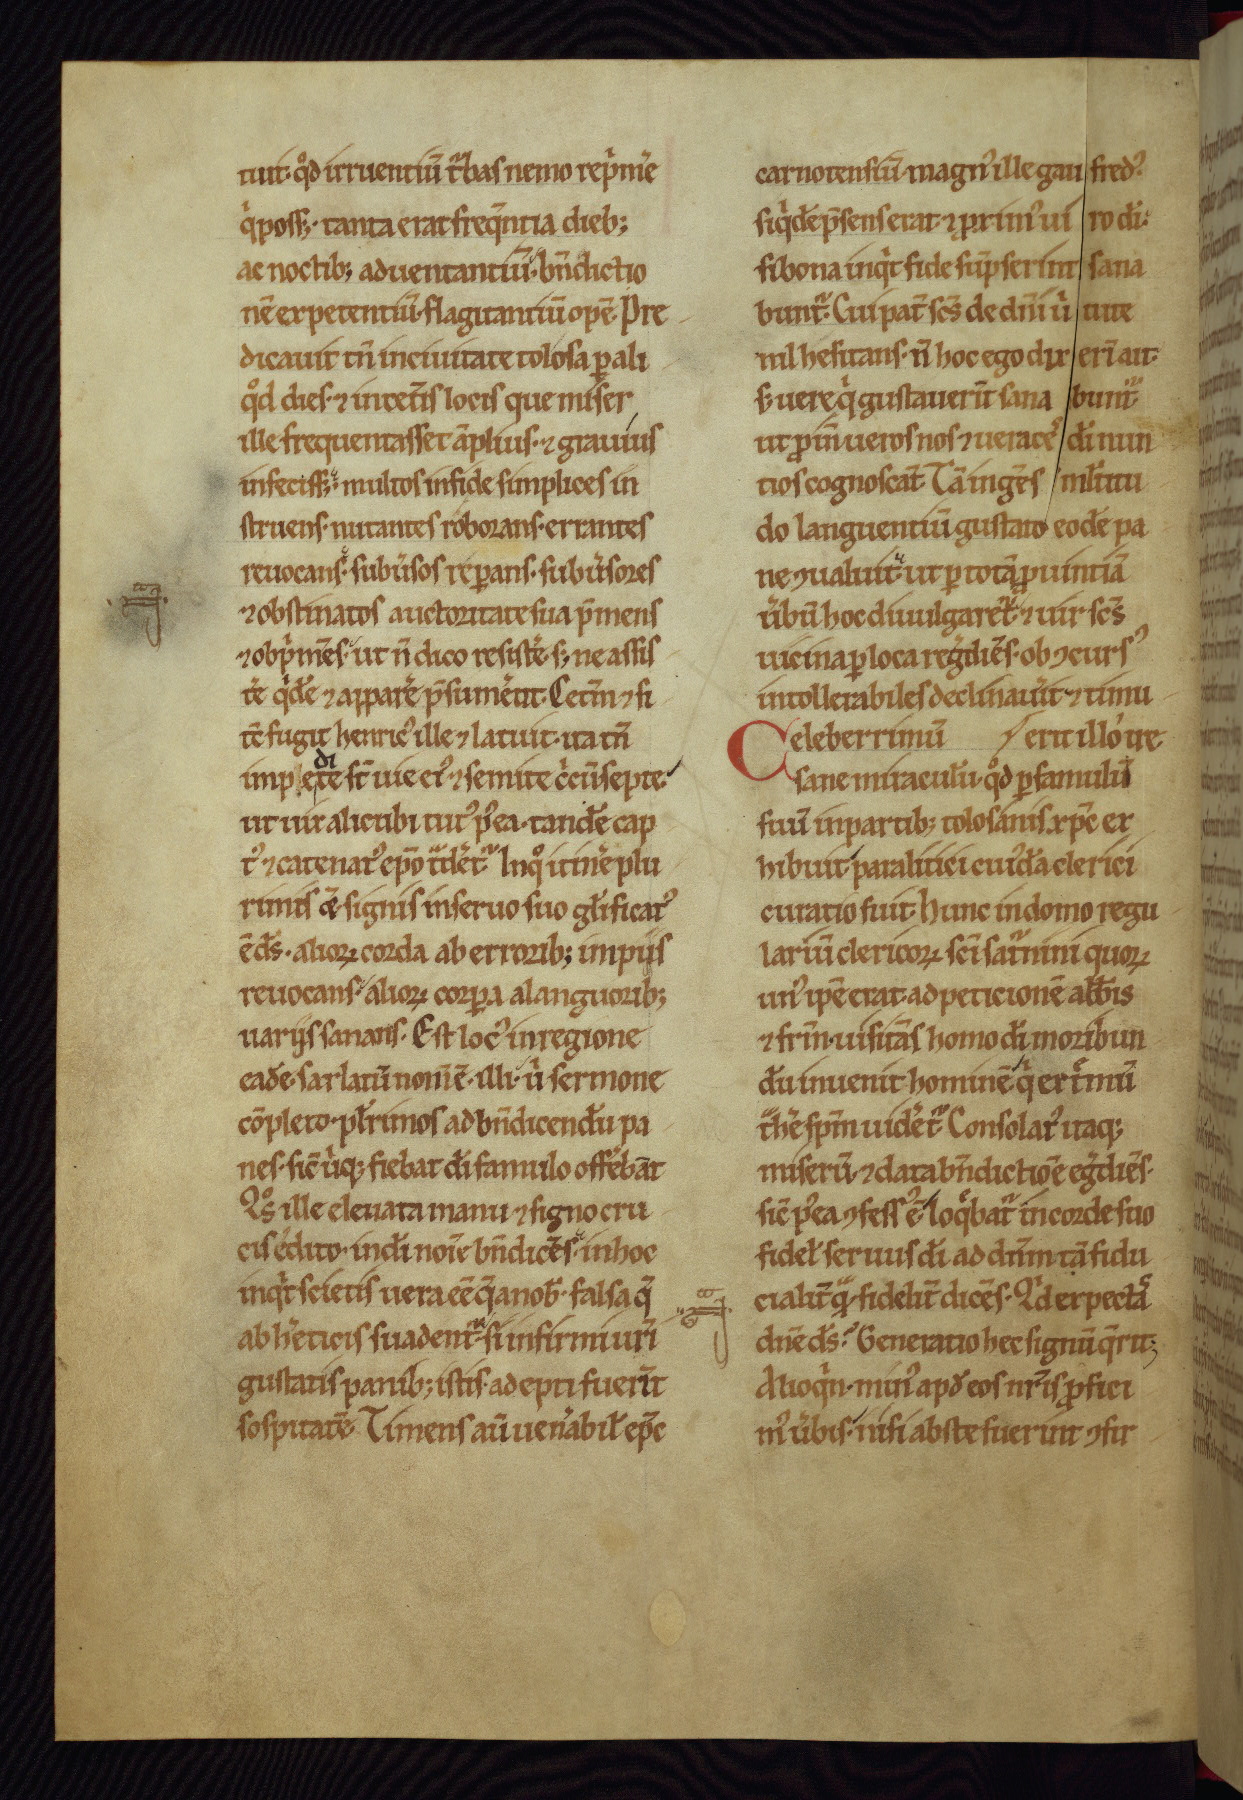 tuit· qͦd irruentiū t̾bas nemo rep̾m̾e
q̾ poss&· tanta erat freq̄ntia dieb;
ac noctib; aduentantiū· bn̄dictio
nē expetentiū· flagitantiū opē. Pre
dicauit tn̄ in ciuitate tolosa p ali
qͦd dies· ⁊ in cet̾is locis que miser
ille frequentasset āplius· ⁊ grauius
infeciss&· multos in fide simplices in
struens· nutantes roborans· errantes
reuocans· subu̾sos reparans· subu̾sores
⁊ obstinatos auctoritate sua p̄mens
⁊ obp̾mēs· ut n̄ dico resist̾e· s; ne assis
t̾e q̾dē ⁊ appar̾e p̄sum̾ent. Cet̾m ⁊ si
tē fugit henric᾽ ille ⁊ latuit· ita tn̄
impedite st̄ uie ei᾽ ⁊ semite c̾cūsepte·
ut uix alicubi tut᾽ p᾽ea· tandē cap
t᾽ ⁊ catenat᾽ ep̄o t̾det᷑. In qͦ itin̾e plu
rimis ē signis in seruo suo gl̄ificat᾽
ē ds̄· alioꝝ corda ab errorib; impijs
reuocans· alioꝝ corpora a languorib;
uarijs sanans. Est loc᾽ in regione
eadē· sarlatū nom̄e· illi· ū sermone
cōpleto· pl̄rimos ad bn̄dicendū pa
nes· sic̄ ubiq; fiebat dī famulo offerebāt
Qͦs ille eleuata manu ⁊ signo cru
cis edito· in dī noīe bn̄dicēs· in hoc
inq̾t scietis uera eē q̄ a nob̄· falsa q̄
ab h̾eticis suadent᷑· si infirmi ur̄i
gustatis panib; istis· adepti fuerīt
sospitatē. Timens aū uen̾abil̄ ep̄c
carnotensiū· magn᾽ ille gaufred᾽
siq̾dē p̄sens erat· ⁊ pxim᾽ uiro dī·
si bona inq̾t fide sūpserint sana
bunt᷑. Cui pat̾ scs̄ de dn̄i ū tute
nil hesitans· n̄ hoc ego dixerī ait·
s; uere q̾ gustauerīt sanabunt᷑
ut ꝑin ueros nos ⁊ uerace᾽ dī nun
tios cognoscāt. Tā ingēs ml̄titu
do languentiū gustato eodē pa
ne ꝯualuit· ut p totā puintiā
u̾bū hoc diuulgaret᷑· ⁊ uir scs̄
uicina p loca reg̾diēs· ob ꝯcurs᾽
intollerabiles declinauīt ⁊ timu
Celeberrimū erit illo ire
sane miraculū· qͦd p famulū
suū in partib; tolosanis xp̄c ex
hibuit· paralitici cui᾽dā clerici
curatio fuit. Hunc in domo regu
lariū clericoꝝ sci sat̾nini quoꝝ
un᾽ ip̄e erat· ad peticionē abb̄is
⁊ fr̄m· uisitās homo dī moribun
dū inuenit hominē q̾ ext̾mū
t̾h̾e sp̄m uidet᷑. Consolat᾽ itaq;
miserū· ⁊ data bn̄dictiōe eg̾diēs·
sic̄ p᾽ea ꝯfess᾽ ē· loq̄bat᷑ in corde suo
fidel̄ seruus dī ad dn̄m tā fidu
cialit̾ q̄ fidelit̾ dicēs. Qͥd expectā
dn̄e ds̄? Generatio hec signū q̄rit;
Alioq̾n· min᾽ apd̄ eos nr̄is pfici
m᾽ u̾bis· nisi abs te fuerint ꝯfir